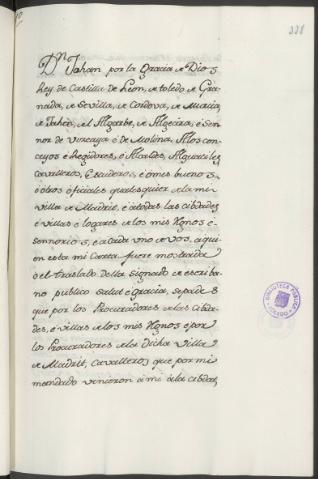 338
Dⁿ Johan por la gracia de Dios
Rey de Castilla de Leon, de toledo de Gra-
nada, de Sevilla, de Cordova, de Murcia,
de Jahen, del Algarbe, de Algecira, é Sen-
nor de Vizcaya é de Molina, A los con-
cejos é Regidores, é Alcaldes, Alguaciles,
Cavalleros, Escuderos, é omes buenos,
é otros oficiales qualesquier de la mi
villa de Madrit, é a todas las cibdades
é villas é logares de los mis Regnos é
sennorios, é a cada uno de vos, a qui-
en esta mi Carta fuere mostrada
ó el traslado della signado de escriba-
no publico salut é gracia, sepades
que por los Procuradores de las cibda-
des, é villas de los mis Regnos é por
los Procuradores de la dicha villa
de Madrit, Cavalleros que por mi
mandado vinieron a mi á la cibdat,
BIBLIOTECA PUBLICA
TOLEDO